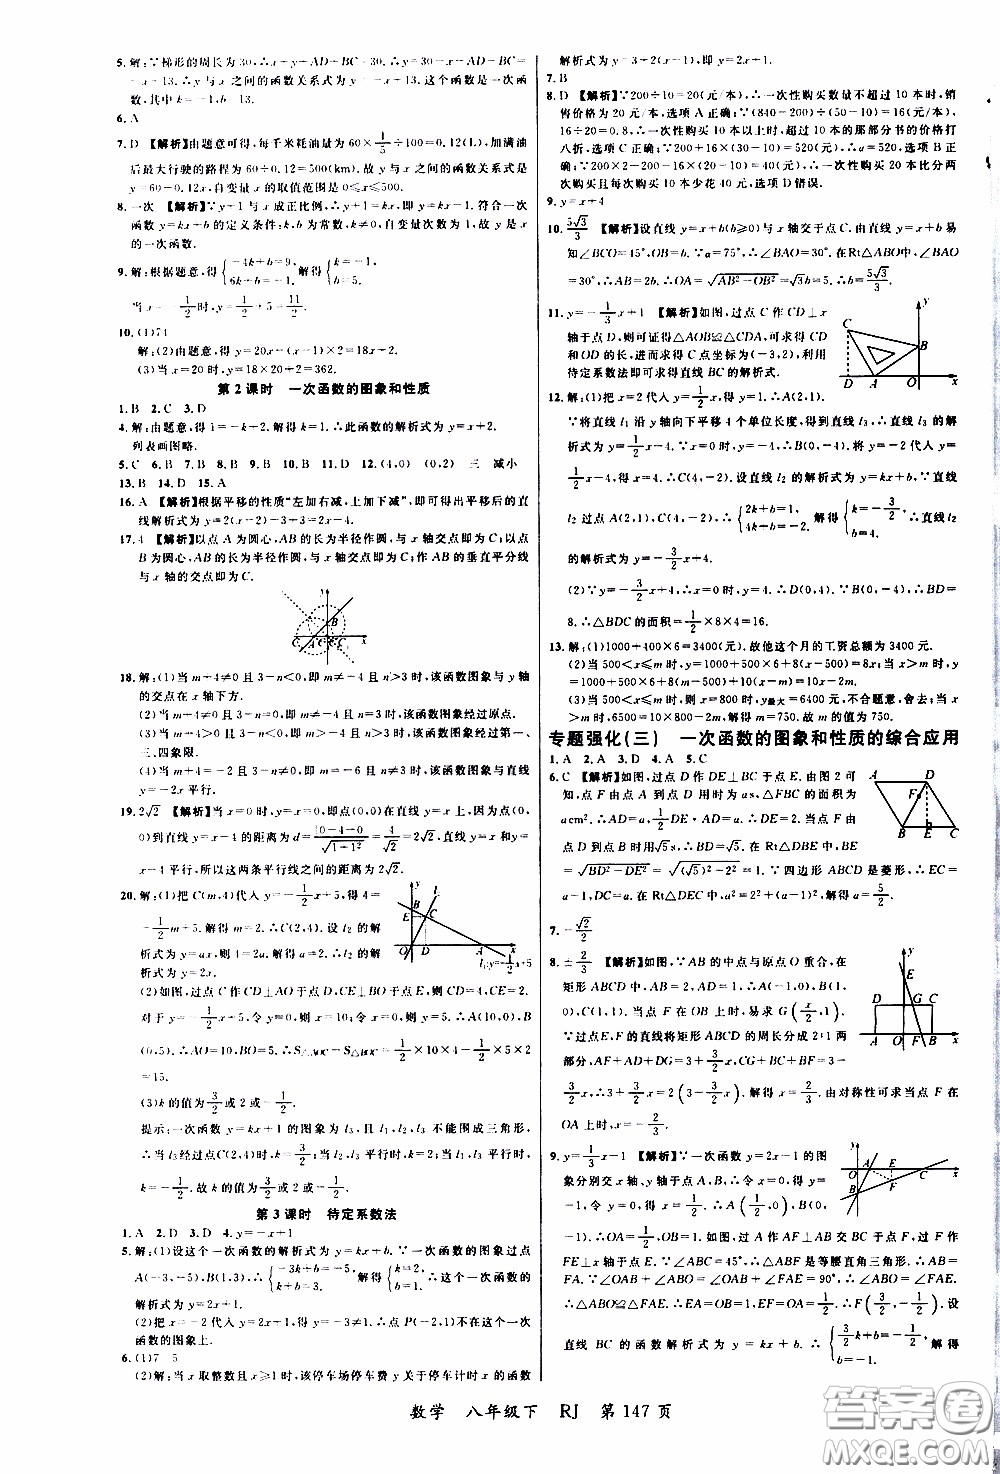 5.解:∵梯形的周长为30,∴x+y+AD+BC=30.∴y=30-x-AD-BC=
-x+13.∴y与x之间的函数关系式为y=-x+13.这个函数是一次函
数,其中k=-1,b=13.
6.A
7.D 【解析】由题意可得,每千米耗油量为60×1/5÷100=0.12(L),加满油
后最大行驶的路程为60÷0.12=500(km).故y与x之间的函数关系式是
y=60-0.12x,自变量x的取值范围是0≤x≤500.
8.一次 【解析】∵y+1与x成正比例,∴y+1=kx,即y=kx-1.符合一次
函数y=kx+b的定义条件:k,b为常数,k≠0,自变量次数为1,故y是x
的一次函数.
9.解:根据题意,得{-4k+b=9,6k+b=-1.解得{k=-1,b=5.
当x=-1/2时,y=-x+5=11/2.
10.(1)74
解:(2)由题意,得y=20x-(x-1)×2=18x+2.
(3)当x=20时,y=18×20+2=362.
第2课时 一次函数的图象和性质
1.B 2.C 3.D
4.解:由题意,得1=-k+2.解得k=1.∴此函数的解析式为y=x+2.
列表画图略.
5.C 6.B 7.B 8.B 9.B 10.B 11.D 12.(4,0) (0,2) 三 减小
13.B 14.D 15.A
16.A 【解析】根据平移的性质“左加右减,上加下减”,即可得出平移后的直
线解析式为y=2(x-3)-3+3=2x-4.
17.4 【解析】以点A为圆心,AB的长为半径作圆,与x轴交点即为C;以点
B为圆心,AB的长为半径作圆,与x轴的交点即为C;作AB的垂直平分线
与x轴的交点即为C.
18.解:(1)当m+4≠0且3-n<0,即m≠-4,n>3时,该函数图象与y轴
的交点在x轴下方.
(2)当m+4≠0且3-n=0,即m≠-4,n=3时,该函数图象经过原点.
(3)当m+4>0且3-n<0,即m>-4,n>3时,该函数图象经过第一、
三、四象限.
(4)当m+4=-1且3-n≠0,即m=-5,n≠3时,该函数图象与直线
y=-2x平行.
19.2√2 【解析】当x=0时,y=x=0,即点(0,0)在直线y=x上,因为点(0,
0)到直线y=x-4的距离为d=|0-4-0|/√(1+1²)=4/√2=2√2,直线y=x和y=
x-4平行,所以这两条平行线之间的距离为2√2.
20.解:(1)把C(m,4)代入y=-1/2x+5,得4=
-1/2m+5.解得m=2.∴C(2,4).设l2的解
析式为y=ax,则4=2a.解得a=2.∴l2的解
析式为y=2x.
(2)如图,过点C作CD⊥AO于点D,CE⊥BO于点E,则CD=4,CE=2.
对于y=-1/2x+5,令x=0,则y=5;令y=0,则x=10.∴A(10,0),B
(0,5).∴AO=10,BO=5.∴S△AOC-S△BOC=1/2×10×4-1/2×5×2
=15.
(3)k的值为3/2或2或-1/2.
提示:一次函数y=kx+1的图象为l3,且l1,l2,l3不能围成三角形,
∴当l3经过点C(2,4)时,k=3/2;当l2,l3平行时,k=2;当l1,l3平行时,
k=-1/2.故k的值为3/2或2或-1/2.
第3课时 待定系数法
1.A 2.D 3.D 4.y=-x+1
5.解:(1)设这个一次函数的解析式为y=kx+b.∵一次函数的图象过点
A(-3,-5),B(1,3),∴{-3k+b=-5,k+b=3.解得{k=2,b=1.∴这个一次函数的
解析式为y=2x+1.
(2)把x=-2代入y=2x+1,解得y=-3.∴点P(-2,1)不在这个一次
函数的图象上.
6.(1)7 5
(2)解:当x取整数且x≥1时,该停车场停车费y关于停车计时x的函数
解析式为y=5+2(x-1),即y=2x+1.
7.B
8.D 【解析】∵200÷10=20(元/本),∴一次性购买数量不超过10本时,销
售价格为20元/本,选项A正确;∵(840-200)÷(50-10)=16(元/本),
16÷20=0.8,∴一次性购买10本以上时,超过10本的那部分书的价格打
八折,选项C正确;∵200+16×(30-10)=520(元),∴a=520,选项B正
确;∵200×2-200-16×(20-10)=40(元),∴一次性购买20本比分两
次购买且每次购买10本少花40元,选项D错误.
9.y=x+4
10.5√3/3 【解析】设直线y=x+b(b≥0)与x轴交于点C.由直线y=x+b易
知∠BCO=45°,OB=b.∵α=75°,∴∠BAO=30°.在Rt△ABO中,∠BAO
=30°,∴AB=2b.∴OA=√(AB²-OB²)=√3b=5.∴b=5√3/3.
11.y=-1/3x+1 【解析】如图,过点C作CD⊥x
轴于点D,则可证得△AOB≌△CDA,可求得CD
和OD的长,进而求得C点坐标为(-3,2),利用
待定系数法即可求得直线BC的解析式.
12.解:(1)把x=2代入y=1/2x,得y=1.∴A(2,1).
∵将直线l1沿y轴向下平移4个单位长度,得到直线l3,∴直线l3的解
析式为y=1/2x-4.∵x=0时,y=-4,∴B(0,-4).将y=-2代入y=
1/2x-4,得x=4.∴C(4,-2).设直线l2的解析式为y=kx+b.∵直线
l2过点A(2,1),C(4,-2),∴{2k+b=1,4k+b=-2.解得{k=-3/2,b=4.∴直线l2
的解析式为y=-3/2x+4.
(2)∵y=-3/2x+4,∴x=0时,y=4.∴D(0,4).∵B(0,-4),∴BD=
8.∴△BDC的面积=1/2×8×4=16.
13.解:(1)1000+400×6=3400(元).故他这个月的工资总额为3400元.
(2)当500<x≤m时,y=1000+500×6+8(x-500)=8x;当x>m时,
y=1000+500×6+8(m-500)+10(x-m)=10x-2m.
(3)当500<x≤m时,x=800时,y最大=6400,不合题意,舍去;当x>
m时,6500=10×800-2m,解得m=750.故m的值为750.
专题强化(三) 一次函数的图象和性质的综合应用
1.A 2.A 3.D 4.A 5.C
6.C 【解析】如图,过点D作DE⊥BC于点E.由图2可
知,点F由点A到点D用时为as,△FBC的面积为
acm².∴1/2DE·AD=a.∴DE=2.当点F从点D
到点B时用√5s,∴BD=√5.在Rt△DBE中,BE
=√(BD²-DE²)=√((√5)²-2²)=1.∵四边形ABCD是菱形,∴EC=
a-1.在Rt△DEC中,a²=2²+(a-1)².解得a=5/2.
7.-√2/2
8.±2/3 【解析】如图,∵AB的中点与原点O重合,在
矩形ABCD中,A(-1,0),B(1,
0),C(1,1).当点F在OB上时,易求G(x/2,1).
∵过点E,F的直线将矩形ABCD的周长分成2:1两
部分,AF+AD+DG=3+3/2x,CG+BC+BF=3-
3/2x,∴3+3/2x=2(3-3/2x).解得x=2/3.由对称性可求当点F在
OA上时,x=-2/3.
9.y=1/3x-1 【解析】∵一次函数y=2x-1的图
象分别交x轴、y轴于点A,B,∴令x=0,得y=
-1,令y=0,则x=1/2.∴A(1/2,0),B(0,
-1).∴OA=1/2,OB=1.如图,过点A作AF⊥AB交BC于点F,过点F作
FE⊥x轴于点E.∵∠ABC=45°,∴△ABF是等腰直角三角形.∴AB=
AF.∵∠OAB+∠ABO=∠OAB+∠FAE=90°,∴∠ABO=∠FAE.
∴△ABO≌△FAE.∴AE=OB=1,EF=OA=1/2.∴F(3/2,-1/2).设
直线BC的函数解析式为y=kx+b,∴{3/2k+b=-1/2,b=-1.解得
数学 八年级下 RJ 第147页
答案圈
MXQE.COM